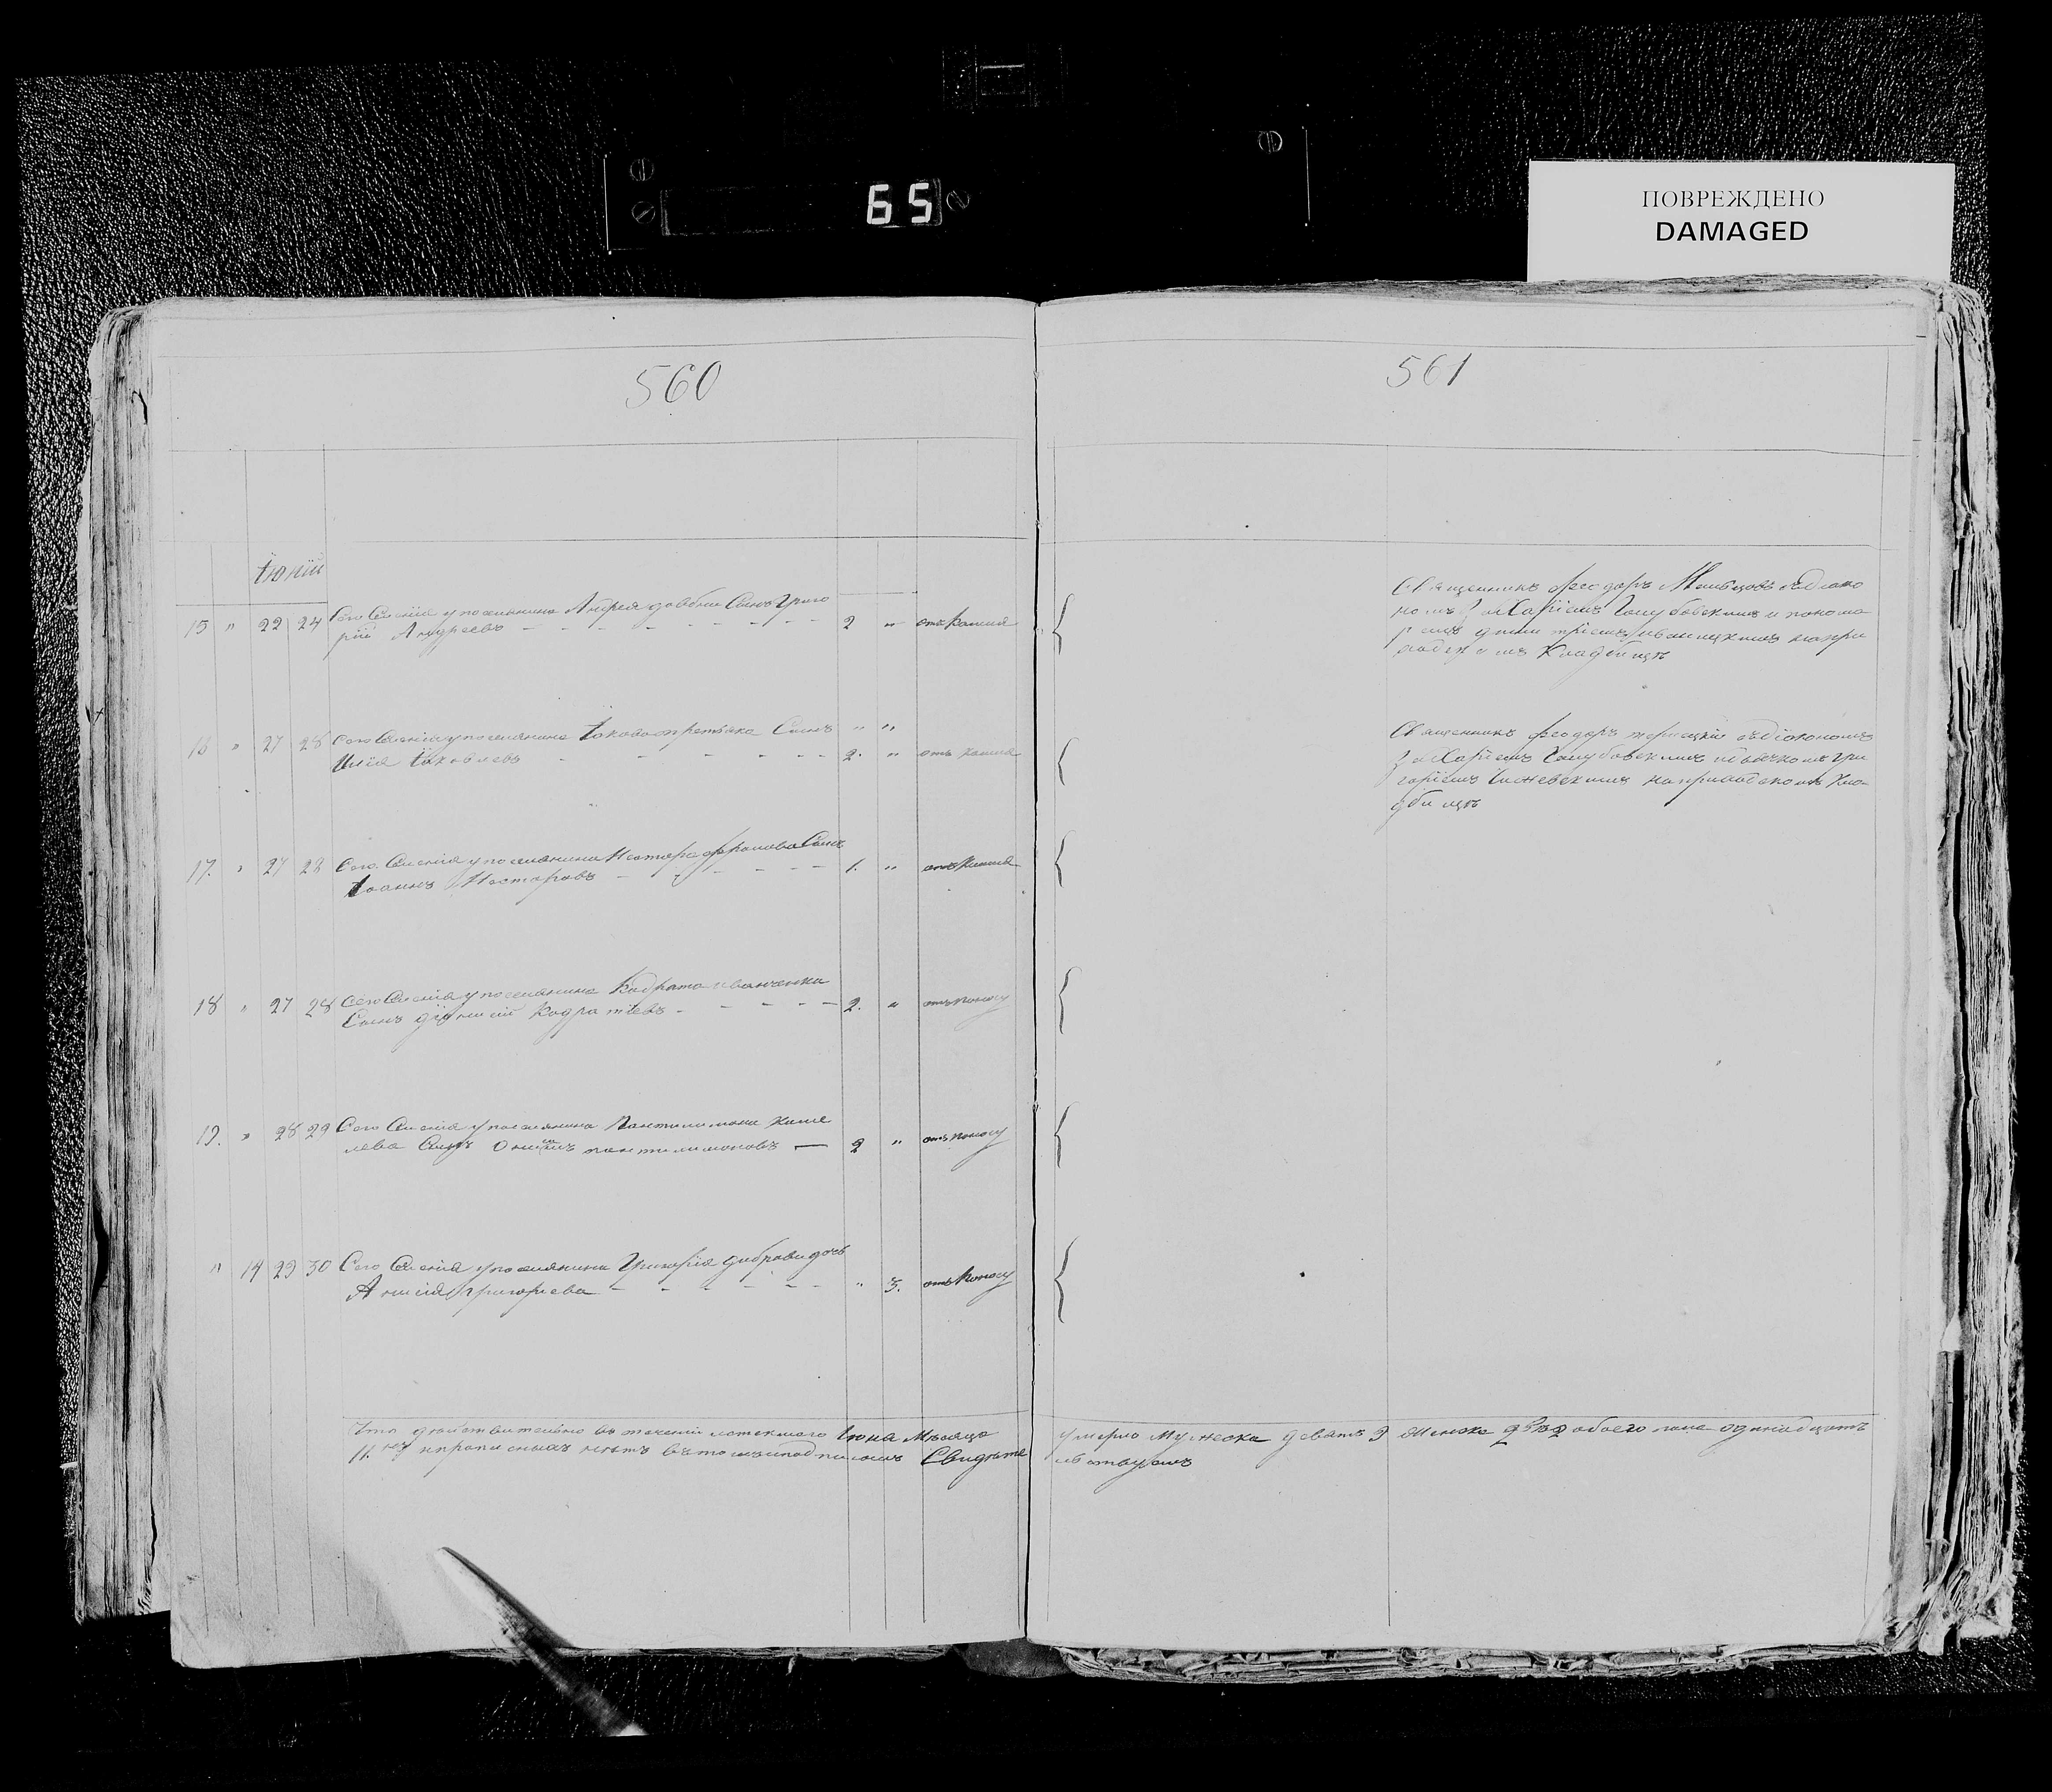 65
ПОВРЕЖДЕНО
DAMAGED
560
Іюній
15 " 22 24 Сего Селенія у поселянина Андрея довбни Сынъ Григо
рій Андреевъ - - - - - - - - 2 " отъ Кашля
16 " 27 28 Сего Селенія у поселянина Іакова третьяка Сынъ " "
Илія Іаковлевъ - - - - - - 2. " отъ кашля
17. " 27 28 Сего Селенія у поселянина Нестора Сынъ
Іоаннъ Несторовъ - - - - - 1. " отъ Кашля
18 " 27 28 Сего Селенія у поселянина Кодрата иванченка
Сынъ Кодратіевъ - - - - - 2. " отъ поносу
19. " 28 29 Сего Селенія у поселянина Пантилимона Кише
лева Сынъ пантилимоновъ — 2 " отъ поносу
" 14 29 30 Сего Селенія у поселянина Григорія диброви дочь
григориева - - - - - - " 3. отъ поносу
Что действительно въ теченіи истекшаго Іюна Мѣсяца
11. ть и пропи сныхъ нетъ въ томъ и подписомъ Свидѣте
561
Священникъ феодоръ съ діако
номъ Захаріемъ Голубовскимъ и понома
ремъ димитріемъ на при
ходскомъ Кладбищѣ
Священникъ феодоръ съ діакономъ
Захаріемъ Голубовскимъ и дьячкомъ Гри
горіемъ на приходскомъ Кла-
дбищѣ
умерло Мужеска девять 9 женска двѣ 2 обоего пола одинадцать
льствуемъ